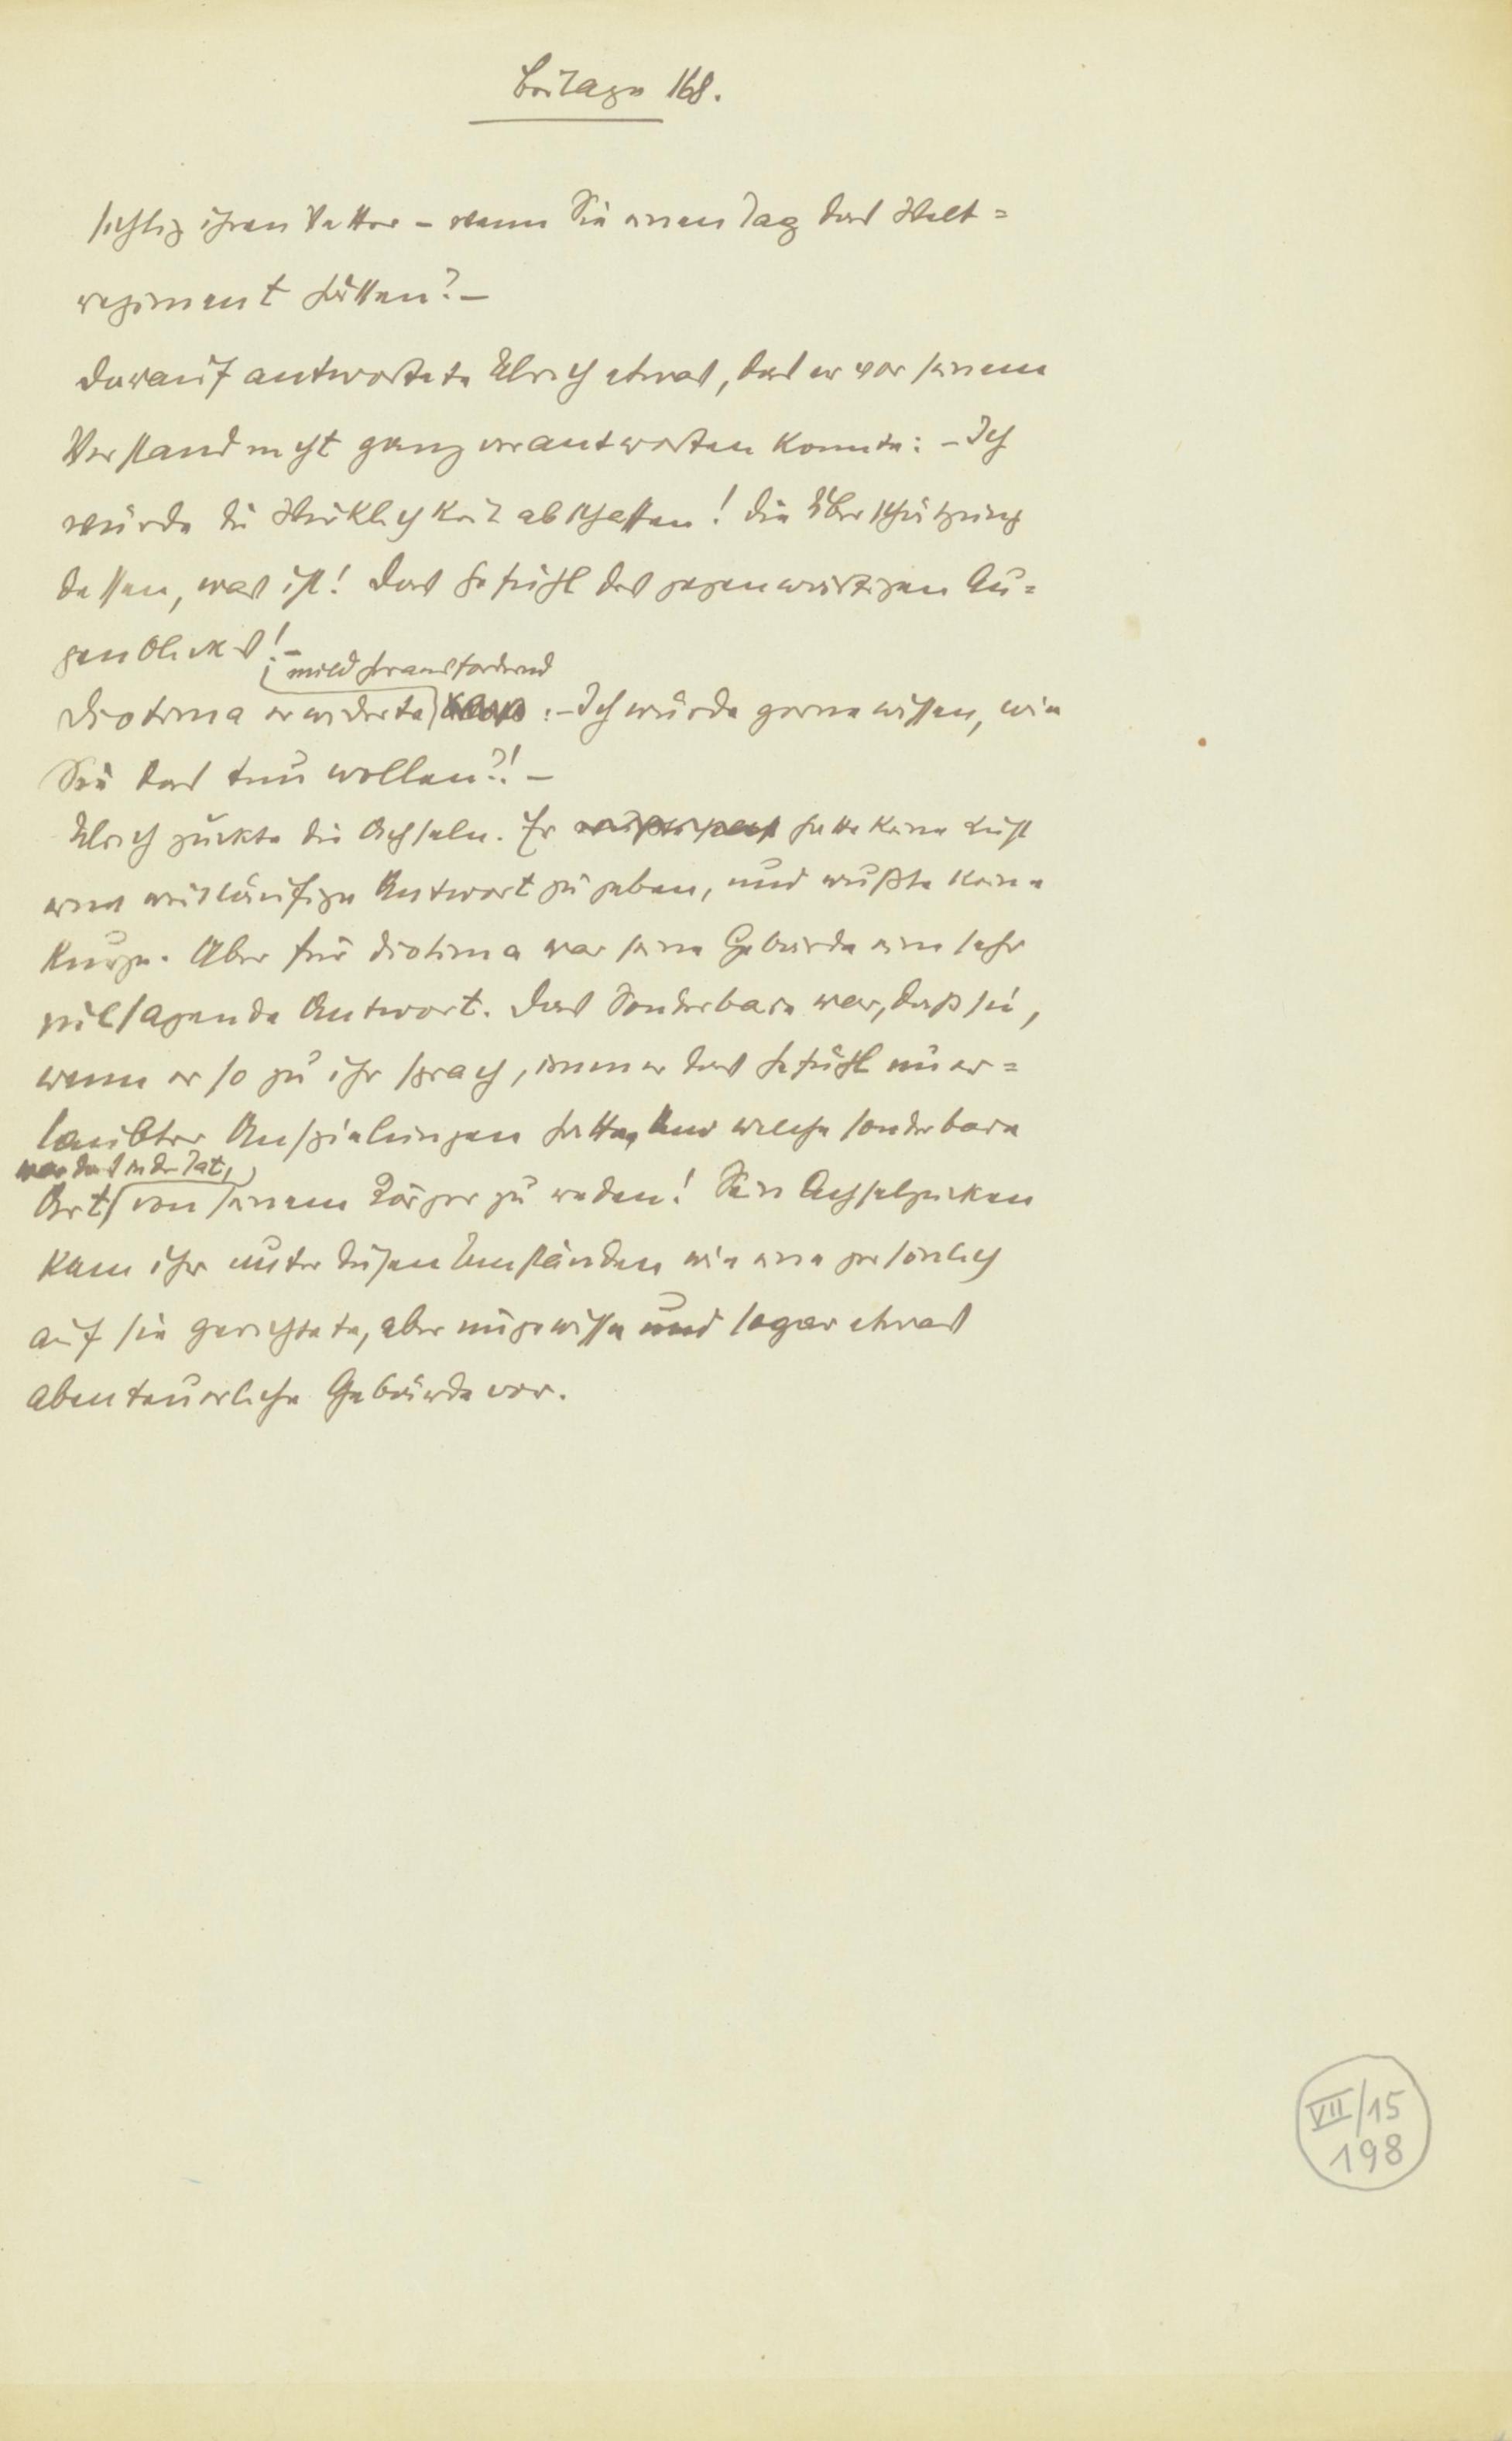 Beilage 168.
sichtig ihren Vetter – wenn Sie einen Tag das Welt=
regiment hätten? –
Darauf antwortete Ulrich etwas, das er vor seinem
Verstand nicht ganz verantworten konnte: – Ich
würde die Wirklichkeit abschaffen! Die Überschätzung
dessen, was ist! Das Gefühl des gegenwärtigen Au=
genblicks! –
mild herausfordernd
Diotima erwiderte : – Ich würde gerne wissen, wie
Sie das tun wollen?! –
Ulrich zuckte die Achseln. Er hatte keine Lust
eine weitläufige Antwort zu geben, und wußte keine
kurze. Aber für Diotima war seine Gebärde eine sehr
vielsagende Antwort. Das Sonderbare war, daß sie,
wenn er so zu ihr sprach, immer das Gefühl uner=
laubter Anspielungen hatte, und welche sonderbare
war das in der Tat,
Art von seinem Körper zu reden! Sein Achselzucken
kam ihr unter diesen Umständen wie eine persönlich
auf sie gerichtete, aber ungewisse und sogar etwas
abenteuerliche Gebärde vor.
VII/15
198